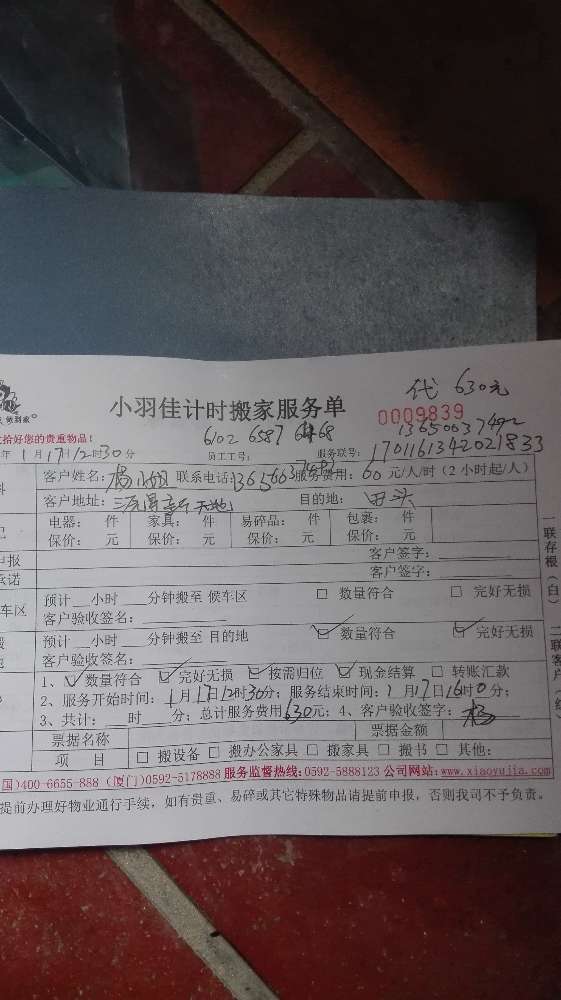 做到家®
小羽佳计时搬家服务单
代 630元
0009839
拾好您的贵重物品!
6102 6587
13650637492
年1月17日12时30分 员工工号: 服务联号: 1701161342021833
客户姓名: 杨小姐 联系电话: 服务费用: 60元/人/时(2小时起/人)
客户地址: 天地 目的地: 田头
电器: 件 家具: 件 易碎品: 件 包裹: 件
保价: 元 保价: 元 保价: 元 保价: 元
申报 客户签字:
承诺 客户签字:
车区 预计 小时 分钟搬至 候车区 □ 数量符合 □ 完好无损
客户验收签名:
预计 小时 分钟搬至 目的地 ☑ 数量符合 ☑ 完好无损
客户验收签名:
1、☑ 数量符合 ☑ 完好无损 ☑ 按需归位 ☑ 现金结算 □ 转账汇款
2、服务开始时间: 1月17日12时30分; 服务结束时间: 1月17日16时0分;
3、共计: 时 分; 总计服务费用630元; 4、客户验收签字: 杨
票据名称 票据金额
项 目 □ 搬设备 □ 搬办公家具 □ 搬家具 □ 搬书 □ 其他:
国)400-6655-888 (厦门)0592-5178888 服务监督热线:0592-5888123 公司网站:www.xiaoyujia.com
提前办理好物业通行手续,如有贵重、易碎或其它特殊物品请提前申报,否则我司不予负责。
一联存根(白) 二联客户(红)